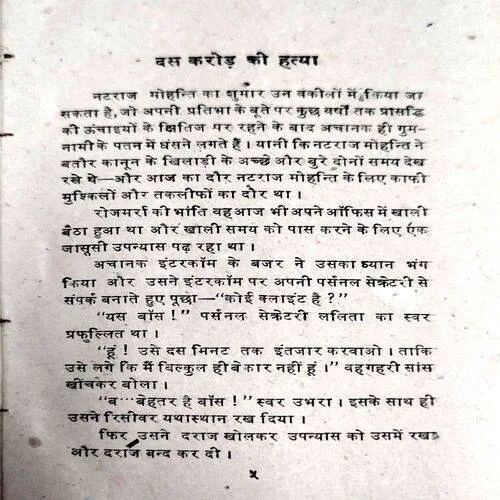 दस करोड़ की हत्या
नटराज मोहन्ति का शुमार उन वकीलों में किया जा
सकता है, जो अपनी प्रतिभा के बूते पर कुछ वर्षों तक प्रसिद्धि
की ऊंचाइयों के क्षितिज पर रहने के बाद अचानक ही गुम-
नामी के पतन में धंसने लगते हैं । यानी कि नटराज मोहन्ति ने
बतौर कानून के खिलाड़ी के अच्छे और बुरे दोनों समय देख
रखे थे—और आज का दौर नटराज मोहन्ति के लिए काफी
मुश्किलों और तकलीफों का दौर था ।
रोजमर्रा की भांति वह आज भी अपने ऑफिस में खाली
बैठा हुआ था और खाली समय को पास करने के लिए एक
जासूसी उपन्यास पढ़ रहा था ।
अचानक इंटरकॉम के बजर ने उसका ध्यान भंग
किया और उसने इंटरकॉम पर अपनी पर्सनल सेक्रेटरी से
संपर्क बनाते हुए पूछा—“कोई क्लाइंट है ?”
“यस बॉस !” पर्सनल सेक्रेटरी ललिता का स्वर
प्रफुल्लित था ।
“हूं ! उसे दस मिनट तक इंतजार करवाओ । ताकि
उसे लगे कि मैं बिल्कुल ही बेकार नहीं हूं ।” वह गहरी सांस
खींचकर बोला ।
“ब···बेहतर है बॉस !” स्वर उभरा । इसके साथ ही
उसने रिसीवर यथास्थान रख दिया ।
फिर उसने दराज खोलकर उपन्यास को उसमें रखा
और दराज बन्द कर दी ।
५